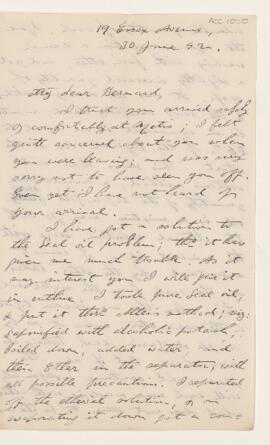 ACC 1000
19 Essex Avenue,
30 June '20.
My dear Bernard,
I trust you arrived safely
& comfortably at Metis; I felt
quite concerned about you when
you were leaving; and was very
sorry not to have seen you off.
Even yet I have not heard of
your arrival.
I have got a solution to
the Seal oil problem; tho it has
given me much trouble. As it
may interest you I will give it
in outline. I took pure Seal oil,
& put it thro Allen's method; viz:
saponified with alcoholic potash,
boiled down, added water and
then Ether in the separator; with
all possible precautions. I separated
off the etherial solution, & on
evaporating it down, got a